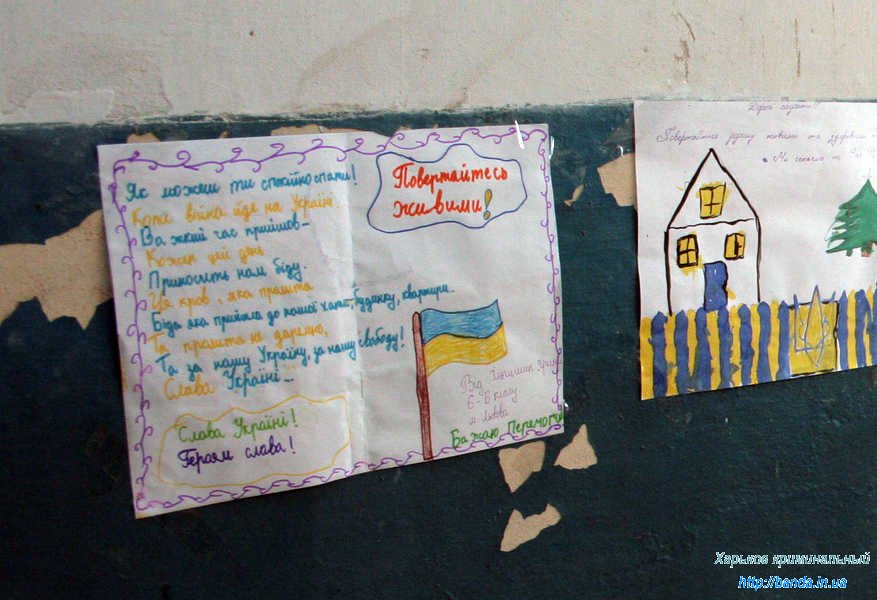 Як можна ти спокійно спати!
Коли війна йде на Україні.
Важкий час прийшов...
Кожен цей день
Приносить нам біду.
Ця кров, яка пролита
Біда яка прийшла до нашої хати, будинку, квартири...
Та пролита не даремно,
Та за нашу Україну, за нашу свободу!
Слава Україні...
Слава Україні!
Героям слава!
Повертайтесь
живими!
Від
6-В класу
м Львова
Бажаю Перемоги
Повертайтеся живими та здорові
Харьков криминальный
http://banda.in.ua